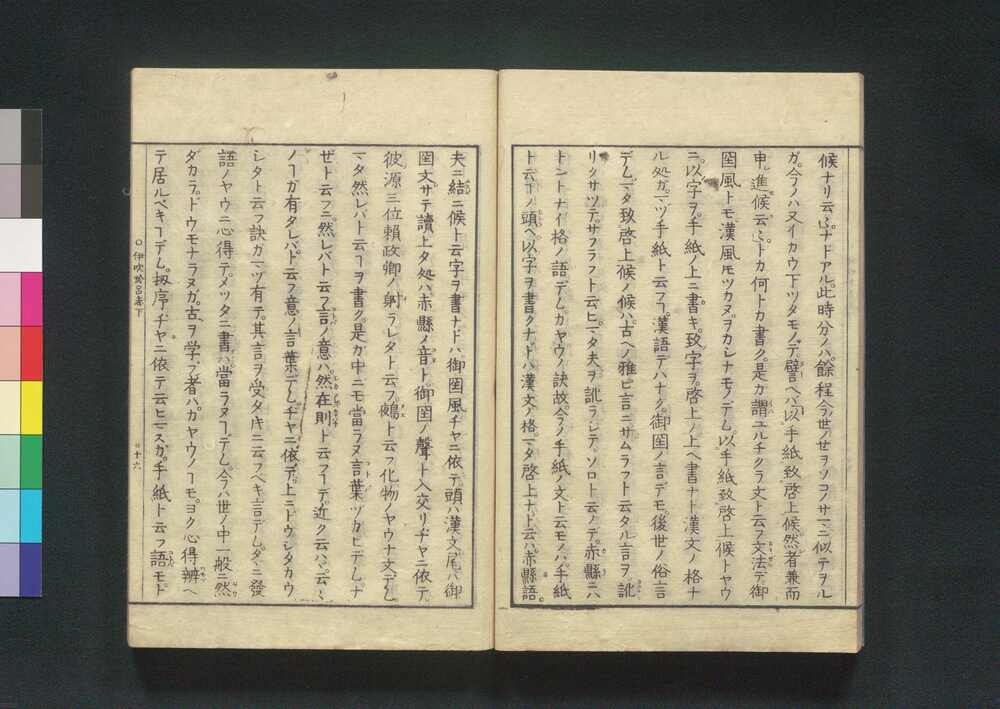 候ナリ云々ナドアル。此時分ノハ餘程今ノ世ノセヲノコノサマニ似テヲル
ガ。今ノハ又イカウ下ツタモノデ。譬ヘバ以手紙致啓上候然者兼而
申進候云々トカ何トカ書ク。是カ謂ユルチクラ文ト云フ文法デ御
国風トモ漢風トモツカヌヲカシナモノデム。以手紙致啓上候トヤウ
ニ。以字ヲ手紙ノ上ニ書キ。致字ヲ啓上ノ上ヘ書ナド漢文ノ格ナ
ル処ガ。マヅ手紙ト云フヿ漢語デハナク。御国ノ言デモ。後世ノ俗言
デム。マタ致啓上候ノ候ハ。古ヘノ雅ビ言ニサムラフト云タル言ヲ訛
リクサツテ。サフラフト云ヒ。マタ夫ヲ訛ラシテ。ソロト云ノデ。赤縣ニハ
トントナイ格ノ語デム。カヤウノ訣故。今ノ手紙ノ文ト云モノハ。手紙
ト云フノ頭ヘ以字ヲ書クナドハ漢文ノ格。マタ啓上ナドト云ハ。赤縣語。
夫ニ結ニ候ト云字ヲ書ナドハ御国風ヂヤニ依テ。頭ハ漢文。尾ハ御
国文。サテ讀上タ処ハ赤縣ノ音ト御国ノ聲ト入交リヂヤニ依テ。
彼源三位賴政卿ノ射ラレタト云フ鵺ト云フ化物ノヤウナ文デム。
マタ然レバト云フヿヲ書ク。是カ中ニモ當ラヌ言葉ヅカヒデム。ナ
ゼト云フニ。然レバト云フ言ノ意ハ。然在則ト云フヿデ。近ク云ハヾ云々
ノヿガ有タレバト云フ意ノ言葉デム。ヂヤニ依テ。上ニドウシタカウ
シタト云フ訣ガ一ツ有テ。其言ヲ受タキニ云フベキ言デム。夫ニ發
語ノヤウニ心得テ。メツタニ書ハ當ラヌヿデム。今ハ世ノ中一般ニ然
ダカラ。ドウモナラヌガ。古ヲ学フ者ハ。カヤウノヿモ。ヨク心得辨ヘ
テ居ルベキヿデム。扨序ヂヤニ依テ云ヒマスガ。手紙ト云フ語モ。ト
〇伊吹於呂志下
十六